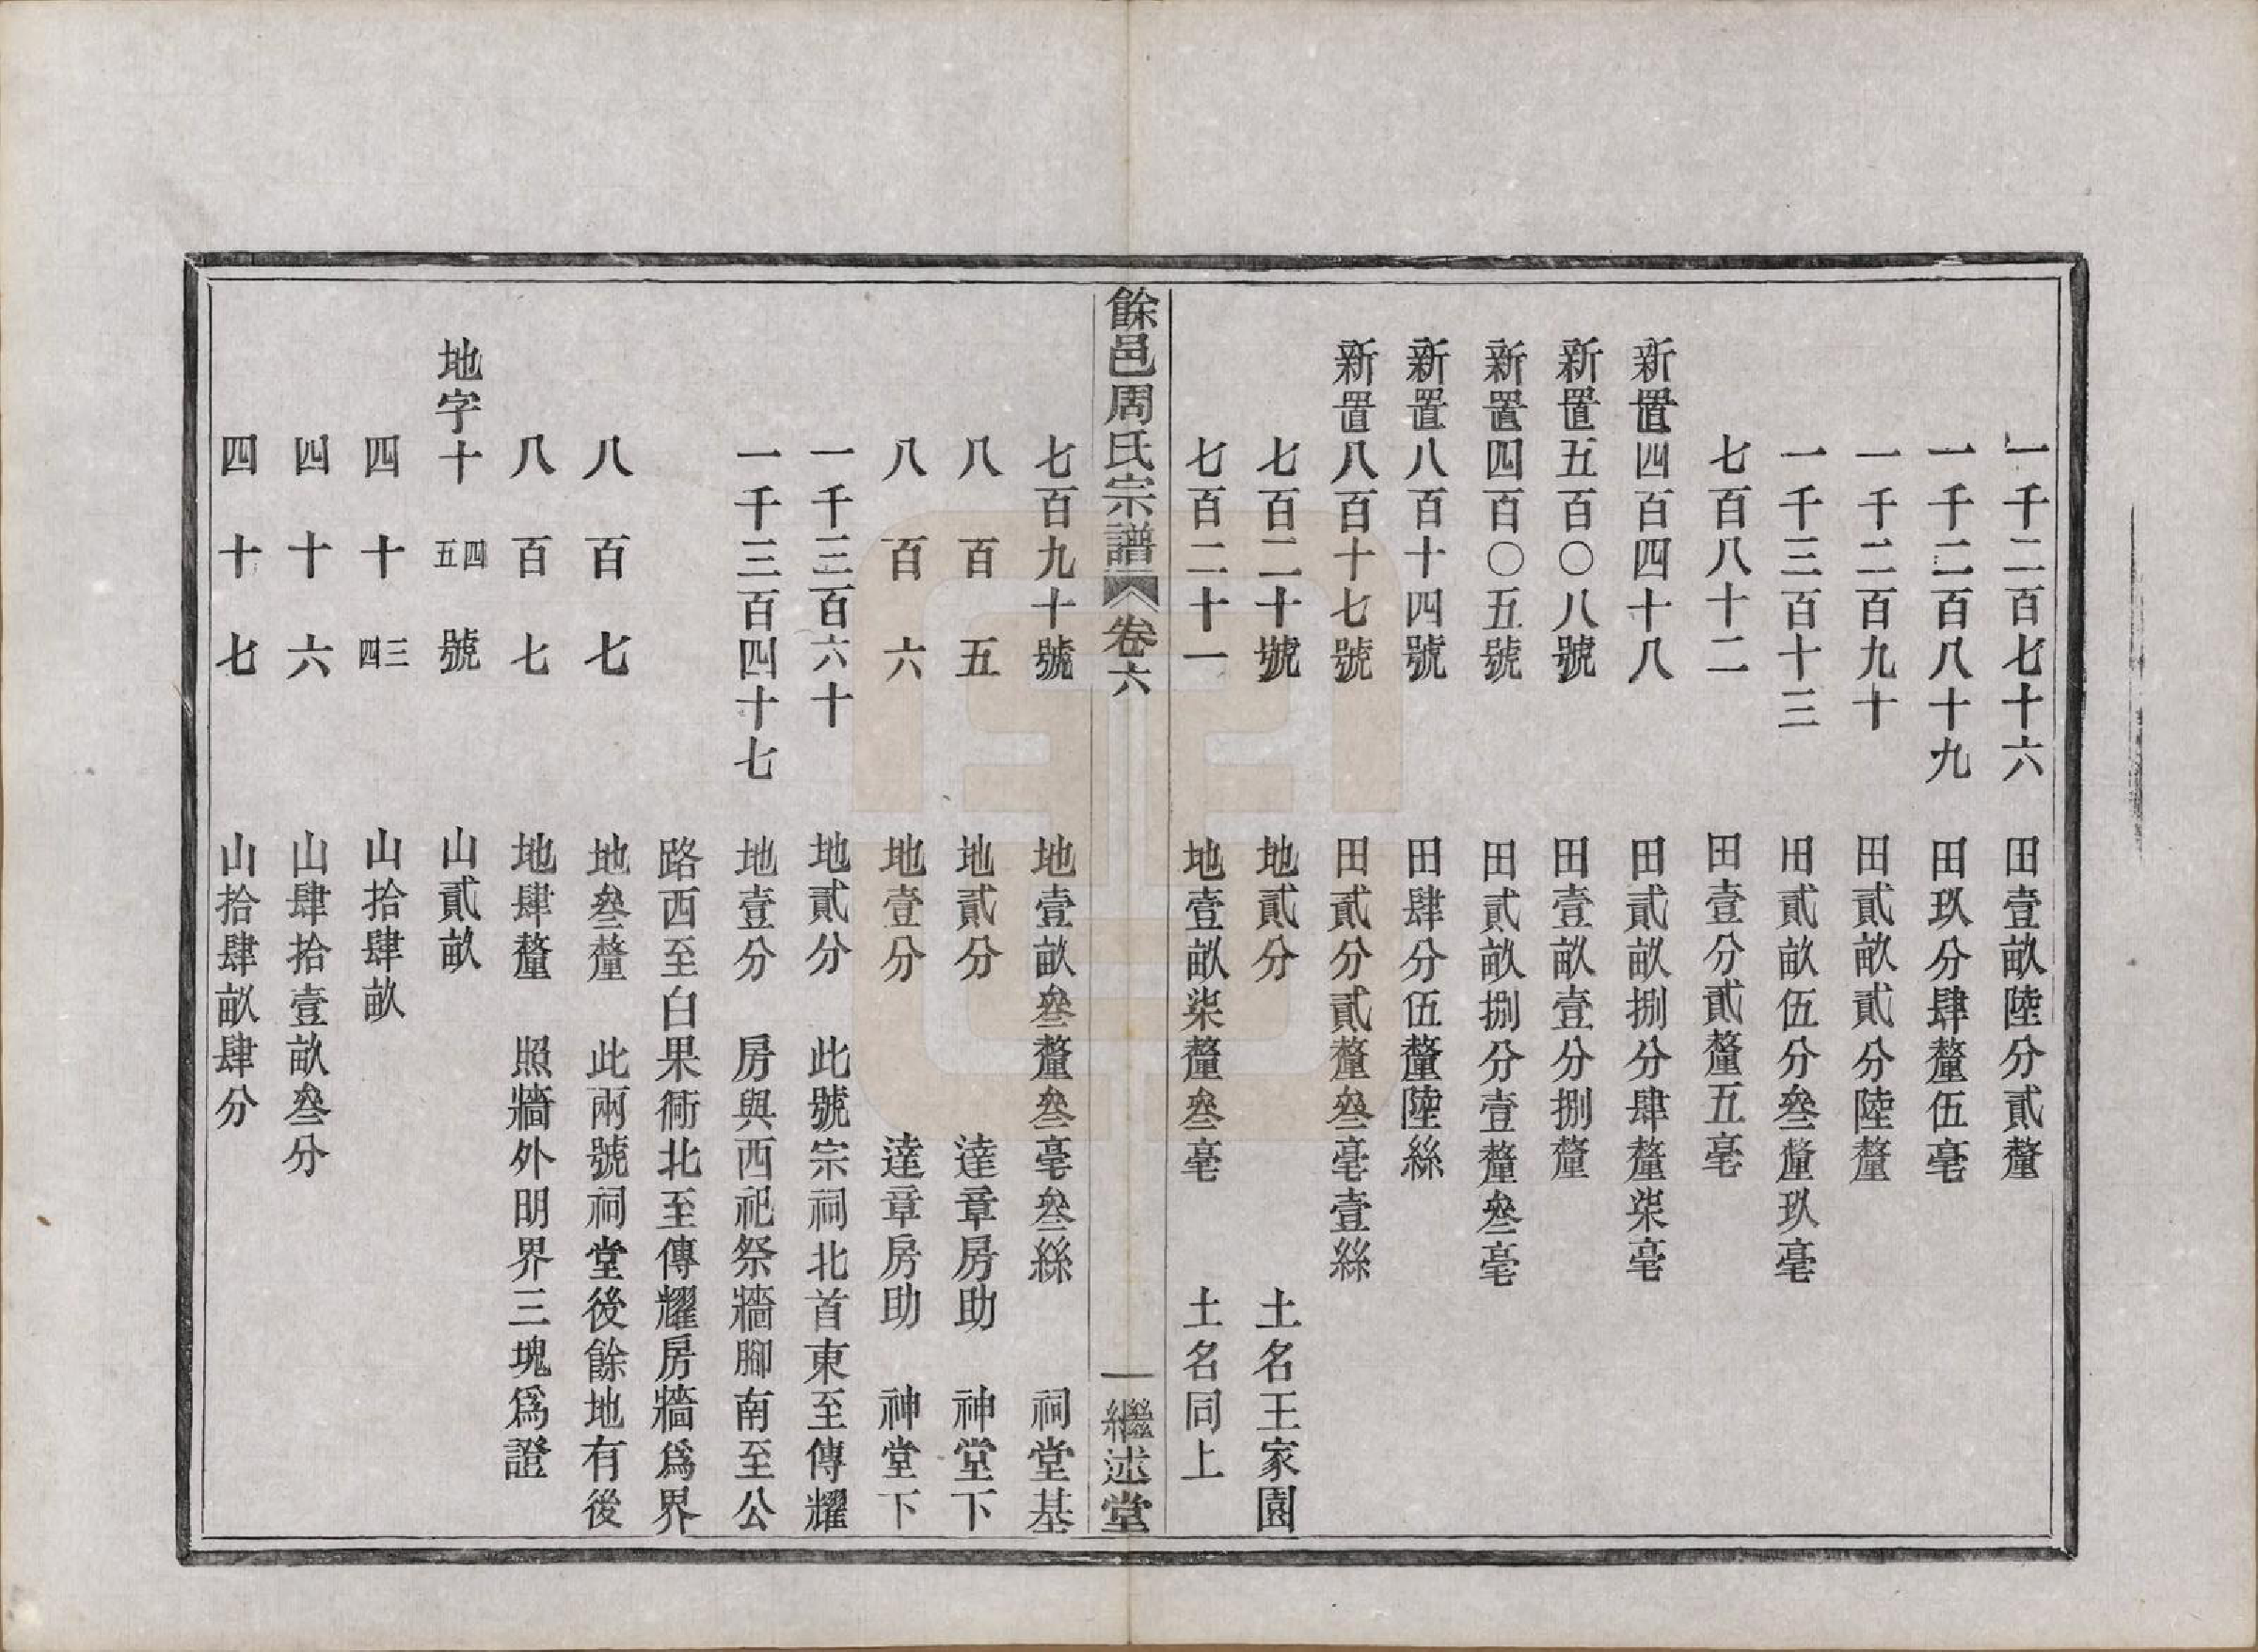 一千二百七十六　田壹畝陸分貳釐
一千二百八十九　田玖分肆釐伍毫
一千二百九十　田貳畝貳分陸釐
一千三百十三　田貳畝伍分叁釐玖毫
七百八十二　田壹分貳釐五毫
新置四百四十八　田貳畝捌分肆釐柒毫
新置五百〇八號　田壹畝壹分捌釐
新置四百〇五號　田貳畝捌分壹釐叁毫
新置八百十四號　田肆分伍釐陸絲
新置八百十七號　田貳分貳釐叁毫壹絲
七百二十號　地貳分　土名王家園
七百二十一　地壹畝柒釐叁毫　土名同上
餘邑周氏宗譜　卷六　一　繼述堂
七百九十號　地壹畝叁釐叁毫叁絲　祠堂基
八百五　地貳分　達章房助　神堂下
八百六　地壹分　達章房助　神堂下
一千三百六十　地貳分　此號宗祠北首東至傳耀
一千三百四十七　地壹分　房與西祀祭牆腳南至公
路西至白果衕北至傳耀房牆爲界
八百七　地叁釐　此兩號祠堂後餘地有後
八百七　地肆釐　照牆外明界三塊爲證
地字十四五號　山貳畝
四十三四　山拾肆畝
四十六　山肆拾壹畝叁分
四十七　山拾肆畝肆分